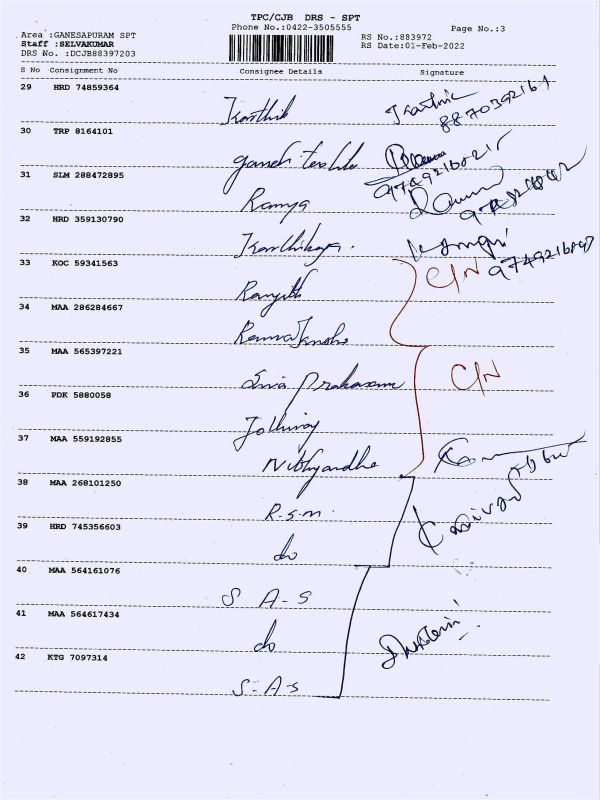 TPC/CJB DRS - SPT
Phone No.:0422-3505555
Page No.:3
Area :GANESAPURAM SPT
RS No.:883972
Staff :SELVAKUMAR
RS Date:01-Feb-2022
DRS No. :DCJB88397203
S No Consignment No Consignee Details Signature
29 HRD 74859364
Karthik
8870392164
30 TRP 8164101
31 SLM 288472895
Ramya
32 HRD 359130790
Karthikaya.
9749216847
33 KOC 59341563
C/N
Ranjith
34 MAA 286284667
35 MAA 565397221
Siva Prakasam
C/N
36 PDK 5880058
37 MAA 559192855
38 MAA 268101250
R-S-M
39 HRD 745356603
do
40 MAA 564161076
S A-S
41 MAA 564617434
do
42 KTG 7097314
S-A-S